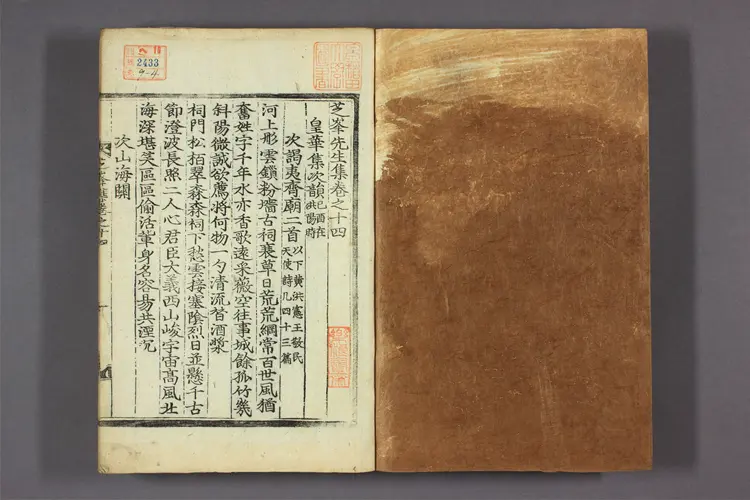 芝峯先生集卷之十四
皇華集次韻 己酉在洪陽時
次謁夷齊廟二首 以下黃洪憲王敬民天使詩凡四十三篇
河上彤雲鎖粉墻古祠衰草日荒荒綱常百世風猶
奮姓字千年水亦香歌遠采薇空往事城餘孤竹幾
斜陽微誠欲薦將何物一勺清流當酒漿
祠門松栢翠森森祠下愁雲接塞陰烈日並懸千古
節澄波長照二人心君臣大義西山峻宇宙高風北
海深堪笑區區偷活輩身名容易共湮沉
次山海關
2433
4-4